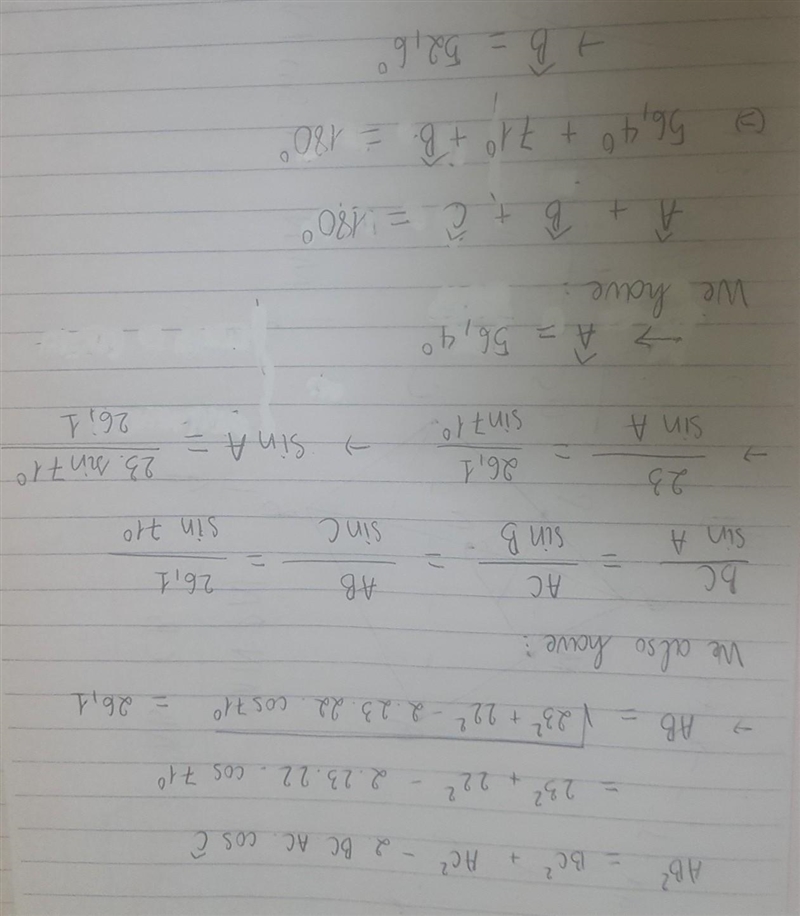 AB² = BC² + AC² - 2 BC AC. cos Ĉ
= 23² + 22² - 2.23.22. cos 71°
→ AB = √23² + 22² - 2.23.22. cos71° = 26,1
We also have:
BC/sin A = AC/sin B = AB/sin C = 26,1/sin 71°
→ 23/sin A = 26,1/sin71° → sin A = 23.sin71°/26,1
→ Â = 56,4°
We have:
Â + B̂ + Ĉ = 180°
(=) 56,4° + 71° + B̂ = 180°
→ B̂ = 52,6°